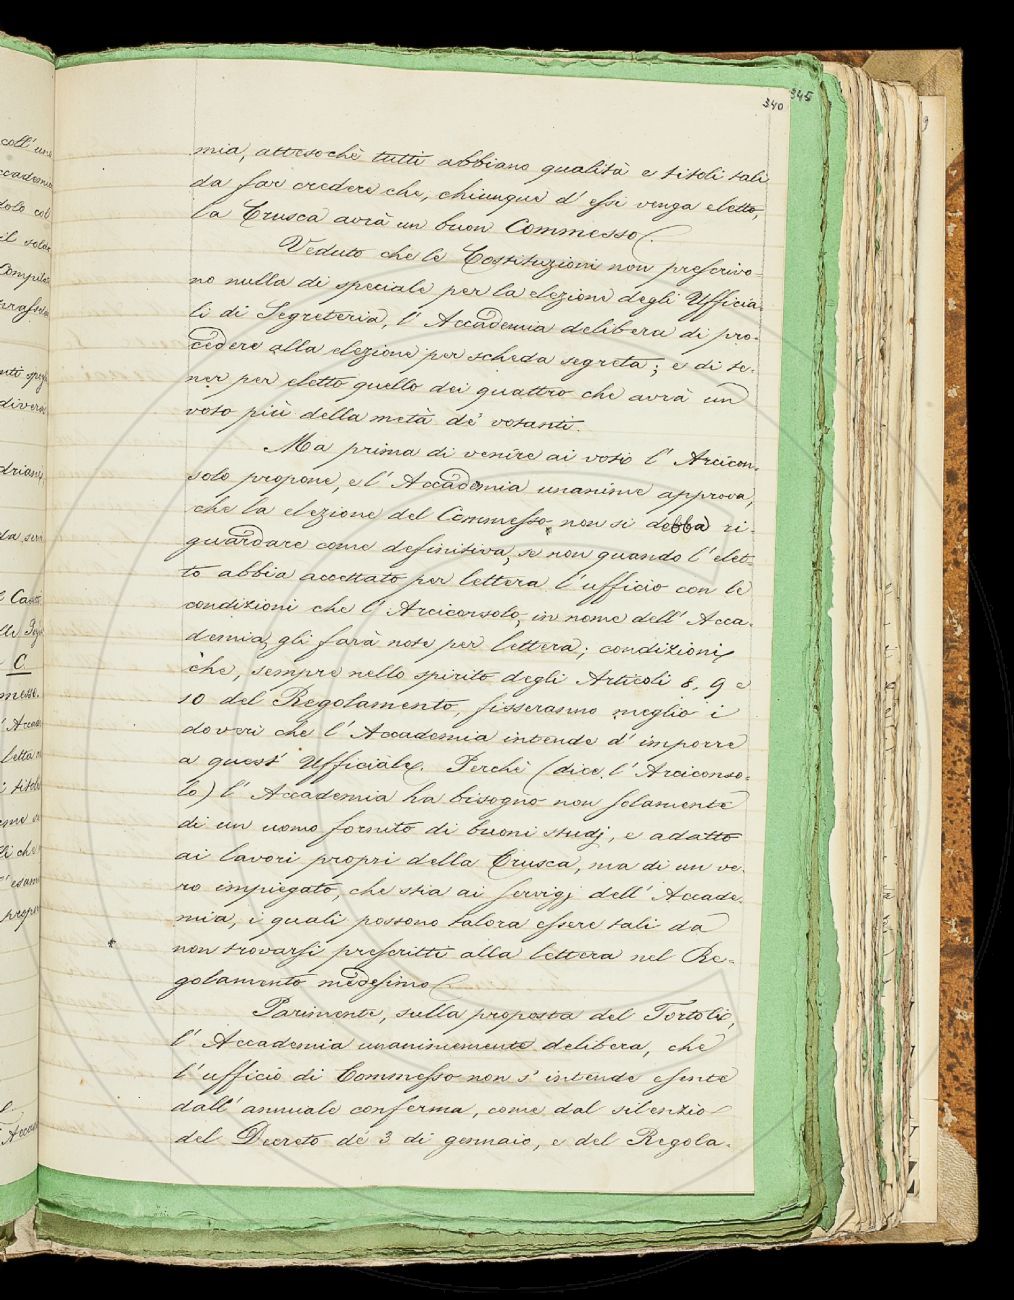 340
345
mia, attesochè tutti abbiano qualità e titoli tali
da far credere che, chiunque d' essi venga eletto,
la Crusca avrà un buon Commesso.
Veduto che le Costituzioni non prescrivo-
no nulla di speciale per la elezione degli Ufficia-
li di Segreteria, l' Accademia delibera di pro-
cedere alla elezione per scheda segreta; e di te-
ner per eletto quello dei quattro che avrà un
voto più della metà de' votanti.
Ma prima di venire ai voti l' Arcicon-
solo propone, e l' Accademia unanime approva,
che la elezione del Commesso non si debba ri-
guardare come definitiva, se non quando l' elet-
to abbia accettato per lettera l' ufficio con le
condizioni che l' Arciconsolo, in nome dell' Acca-
demia, gli farà note per lettera; condizioni
che, sempre nello spirito degli Articoli 8, 9 e
10 del Regolamento, fisseranno meglio i
doveri che l' Accademia intende d' imporre
a quest' Ufficiale. Perchè (dice l' Arciconso-
lo) l' Accademia ha bisogno non solamente
di un uomo fornito di buoni studj, e adatto
ai lavori propri della Crusca, ma di un ve-
ro impiegato, che stia ai servigj dell' Accade-
mia, i quali possono talora essere tali da
non trovarsi prescritti alla lettera nel Re-
golamento medesimo.
Parimente, sulla proposta del Tortoli,
l' Accademia unanimemente delibera, che
l' ufficio di Commesso non s' intende esente
dall' annuale conferma, come dal silenzio
del Decreto de' 3 di gennaio, e del Regola-